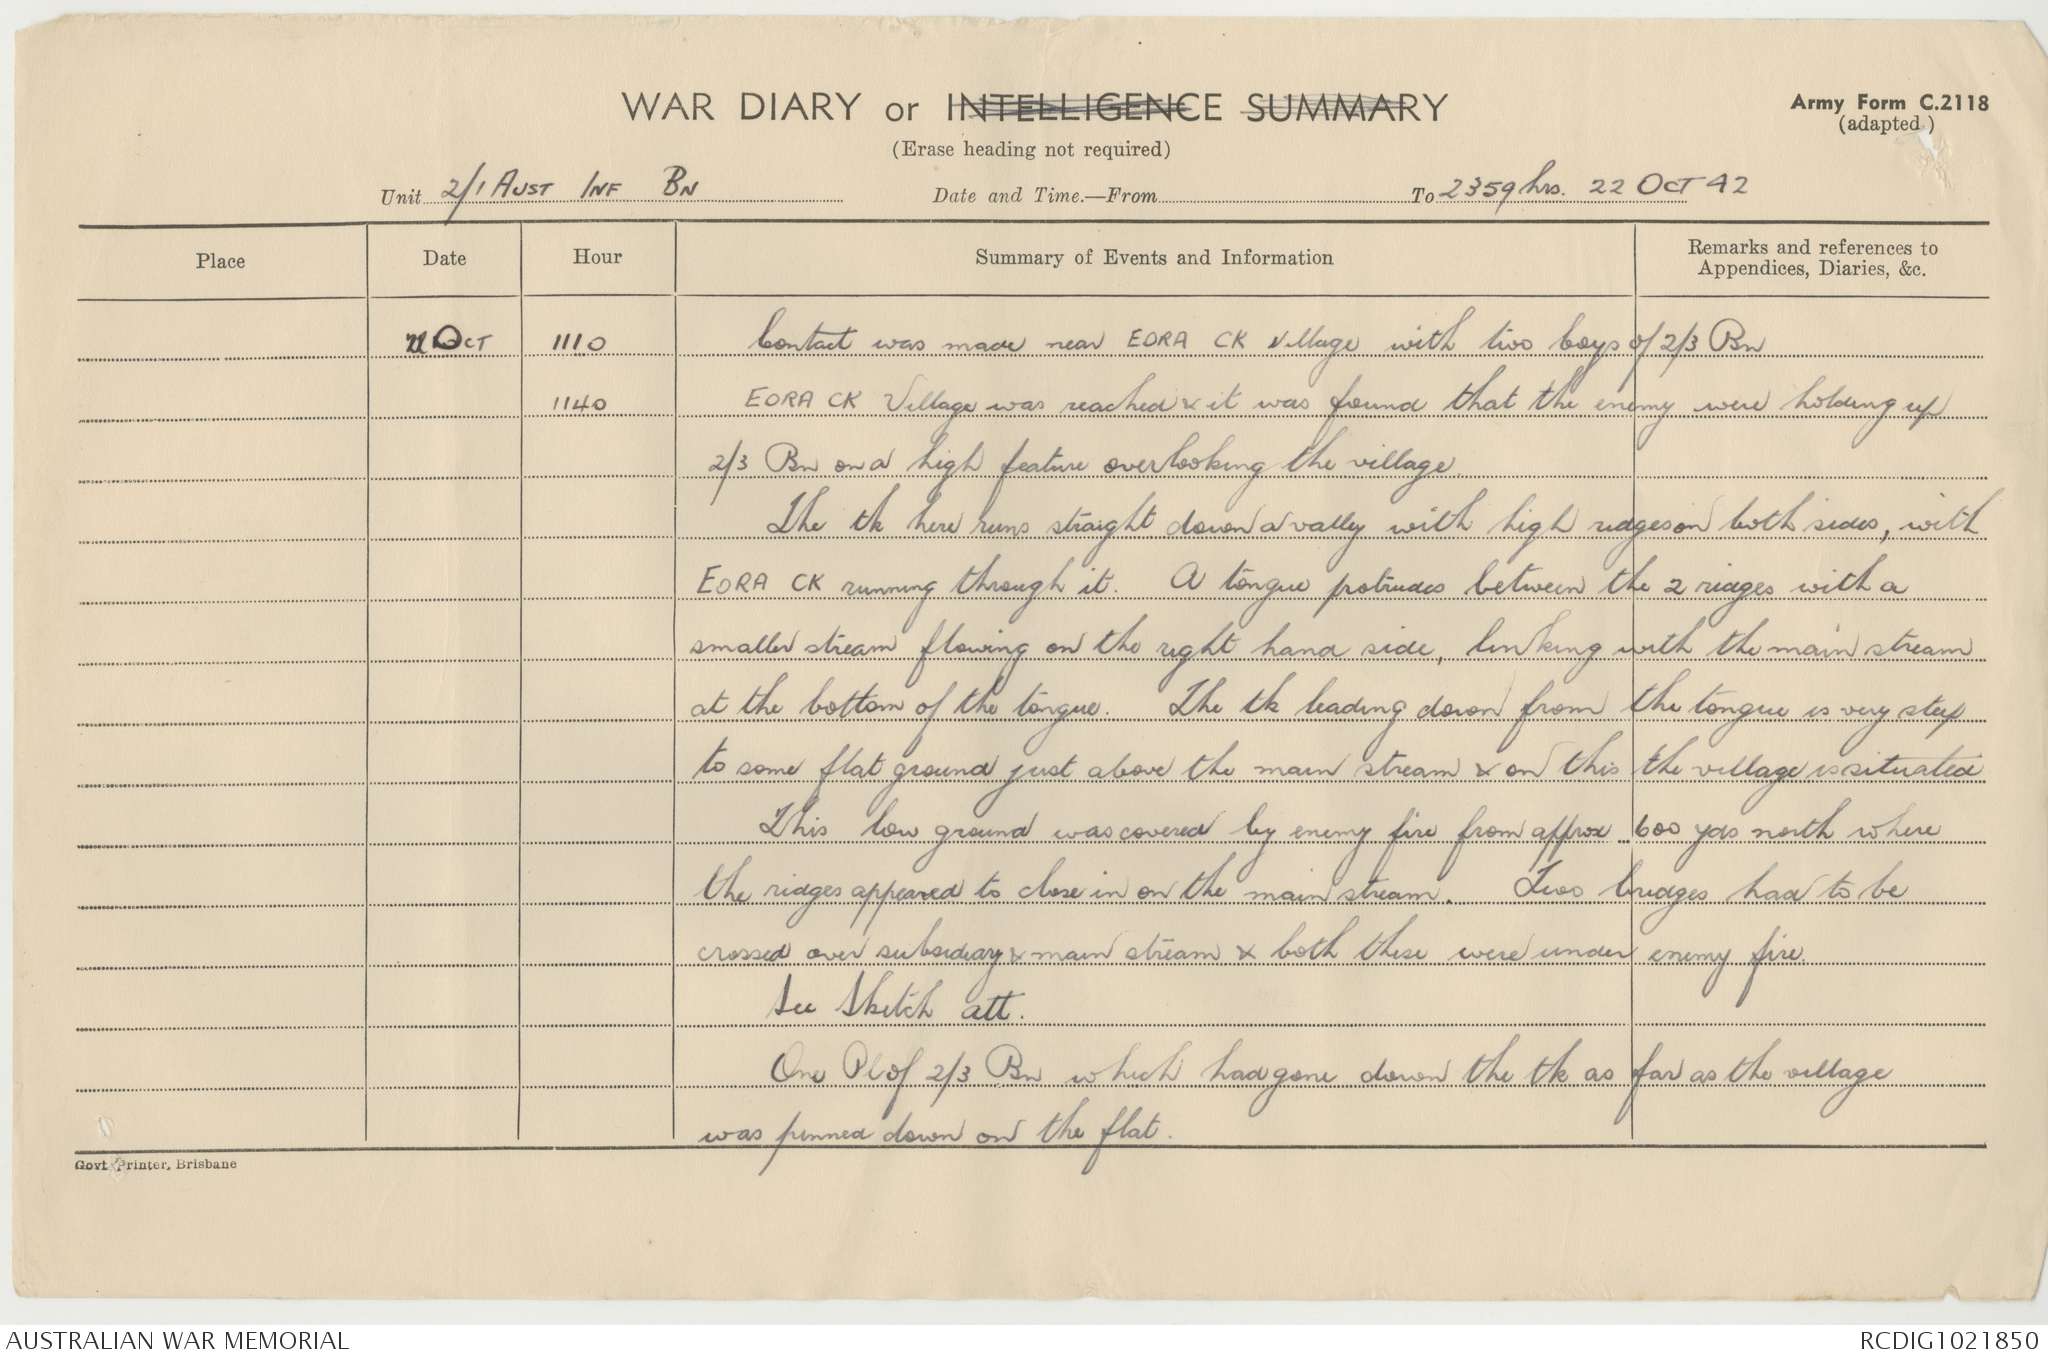 WAR DIARY or INTELLIGENCE SUMMARY
Army Form C.2118
(adapted)
(Erase heading not required)
Unit 2/1 AUST INF BN Date and Time.—From To 2359 hrs. 22 OCT 42
Place Date Hour Summary of Events and Information Remarks and references to
Appendices, Diaries, &c.
OCT 1110 Contact was made near EORA CK Village with two boys of 2/3 Bn
1140 EORA CK Village was reached & it was found that the enemy were holding up
2/3 Bn on a high feature overlooking the village.
The tk here runs straight down a vally with high ridges on both sides, with
EORA CK running through it. A tongue protrudes between the 2 ridges with a
smaller stream flowing on the right hand side, linking with the main stream
at the bottom of the tongue. The tk leading down from the tongue is very steep
to some flat ground just above the main stream & on this the village is situated
This low ground was covered by enemy fire from approx 600 yds north where
the ridges appeared to close in on the main stream. Two bridges had to be
crossed over subsidiary & main stream & both these were under enemy fire.
See Sketch att.
One Pl of 2/3 Bn which had gone down the tk as far as the village
was pinned down on the flat.
Govt Printer, Brisbane
AUSTRALIAN WAR MEMORIAL
RCDIG1021850